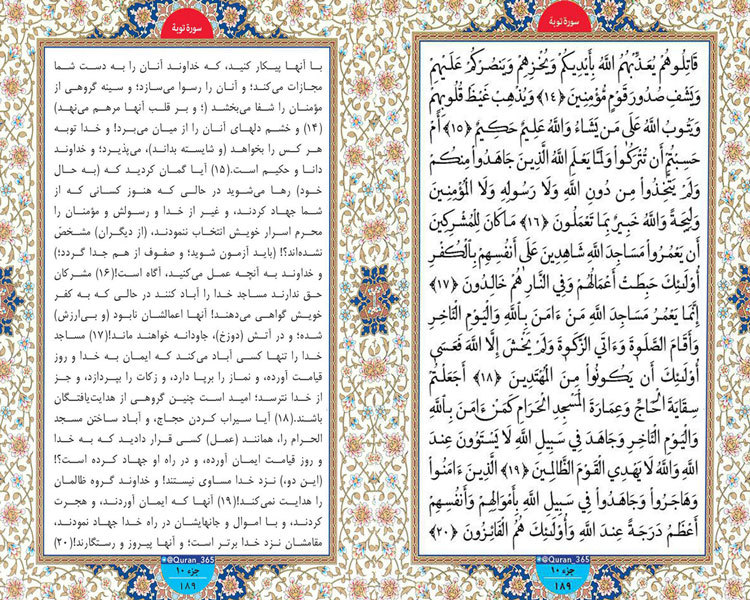 سورهٔ توبهٔ
قَاتِلُوهُمْ يُعَذِّبْهُمُ اللَّهُ بِأَيْدِيكُمْ وَيُخْزِهِمْ وَيَنصُرْكُمْ عَلَيْهِمْ
وَيَشْفِ صُدُورَ قَوْمٍ مُّؤْمِنِينَ ﴿١٤﴾ وَيُذْهِبْ غَيْظَ قُلُوبِهِمْ
وَيَتُوبُ اللَّهُ عَلَى مَن يَشَاءُ وَاللَّهُ عَلِيمٌ حَكِيمٌ ﴿١٥﴾ أَمْ
حَسِبْتُمْ أَن تُتْرَكُوا وَلَمَّا يَعْلَمِ اللَّهُ الَّذِينَ جَاهَدُوا مِنكُمْ
وَلَمْ يَتَّخِذُوا مِن دُونِ اللَّهِ وَلَا رَسُولِهِ وَلَا الْمُؤْمِنِينَ
وَلِيجَةً وَاللَّهُ خَبِيرٌ بِمَا تَعْمَلُونَ ﴿١٦﴾ مَا كَانَ لِلْمُشْرِكِينَ
أَن يَعْمُرُوا مَسَاجِدَ اللَّهِ شَاهِدِينَ عَلَى أَنفُسِهِم بِالْكُفْرِ
أُوْلَئِكَ حَبِطَتْ أَعْمَالُهُمْ وَفِي النَّارِ هُمْ خَالِدُونَ ﴿١٧﴾
إِنَّمَا يَعْمُرُ مَسَاجِدَ اللَّهِ مَنْ ءَامَنَ بِاللَّهِ وَالْيَوْمِ الْآخِرِ
وَأَقَامَ الصَّلَوٰةَ وَءَاتَى الزَّكَوٰةَ وَلَمْ يَخْشَ إِلَّا اللَّهَ فَعَسَى
أُوْلَئِكَ أَن يَكُونُوا مِنَ الْمُهْتَدِينَ ﴿١٨﴾ أَجَعَلْتُمْ
سِقَايَةَ الْحَاجِّ وَعِمَارَةَ الْمَسْجِدِ الْحَرَامِ كَمَنْ ءَامَنَ بِاللَّهِ
وَالْيَوْمِ الْآخِرِ وَجَاهَدَ فِي سَبِيلِ اللَّهِ لَا يَسْتَوُونَ عِندَ
اللَّهِ وَاللَّهُ لَا يَهْدِي الْقَوْمَ الظَّالِمِينَ ﴿١٩﴾ الَّذِينَ ءَامَنُوا
وَهَاجَرُوا وَجَاهَدُوا فِي سَبِيلِ اللَّهِ بِأَمْوَالِهِمْ وَأَنفُسِهِمْ
أَعْظَمُ دَرَجَةً عِندَ اللَّهِ وَأُوْلَئِكَ هُمُ الْفَائِزُونَ ﴿٢٠﴾
@Quran_365
جزء ١٠
١٨٩
سورهٔ توبهٔ
با آنها پیکار کنید، که خداوند آنان را به دست شما
مجازات می‌کند؛ و آنان را رسوا می‌سازد؛ و سینه گروهی از
مؤمنان را شفا می‌بخشد (؛ و بر قلب آنها مرهم می‌نهد)
(۱۴) و خشم دلهای آنان را از میان می‌برد! و خدا توبه
هر کس را بخواهد (و شایسته بداند)، می‌پذیرد؛ و خداوند
دانا و حکیم است.(۱۵) آیا گمان کردید که (به حال
خود) رها می‌شوید در حالی که هنوز کسانی که از
شما جهاد کردند، و غیر از خدا و رسولش و مؤمنان را
محرم اسرار خویش انتخاب ننمودند، (از دیگران) مشخص
نشده‌اند؟! (باید آزمون شوید؛ و صفوف از هم جدا گردد؛)
و خداوند به آنچه عمل می‌کنید، آگاه است!(۱۶) مشرکان
حق ندارند مساجد خدا را آباد کنند در حالی که به کفر
خویش گواهی می‌دهند! آنها اعمالشان نابود (و بی‌ارزش)
شده؛ و در آتش (دوزخ)، جاودانه خواهند ماند!(۱۷) مساجد
خدا را تنها کسی آباد می‌کند که ایمان به خدا و روز
قیامت آورده، و نماز را برپا دارد، و زکات را بپردازد، و جز
از خدا نترسد؛ امید است چنین گروهی از هدایت‌یافتگان
باشند.(۱۸) آیا سیراب کردن حجاج، و آباد ساختن مسجد
الحرام را، همانند (عمل) کسی قرار دادید که به خدا
و روز قیامت ایمان آورده، و در راه او جهاد کرده است؟!
(این دو،) نزد خدا مساوی نیستند! و خداوند گروه ظالمان
را هدایت نمی‌کند!(۱۹) آنها که ایمان آوردند، و هجرت
کردند، و با اموال و جانهایشان در راه خدا جهاد نمودند،
مقامشان نزد خدا برتر است؛ و آنها پیروز و رستگارند!(۲۰)
@Quran_365
جزء ١٠
١٨٩